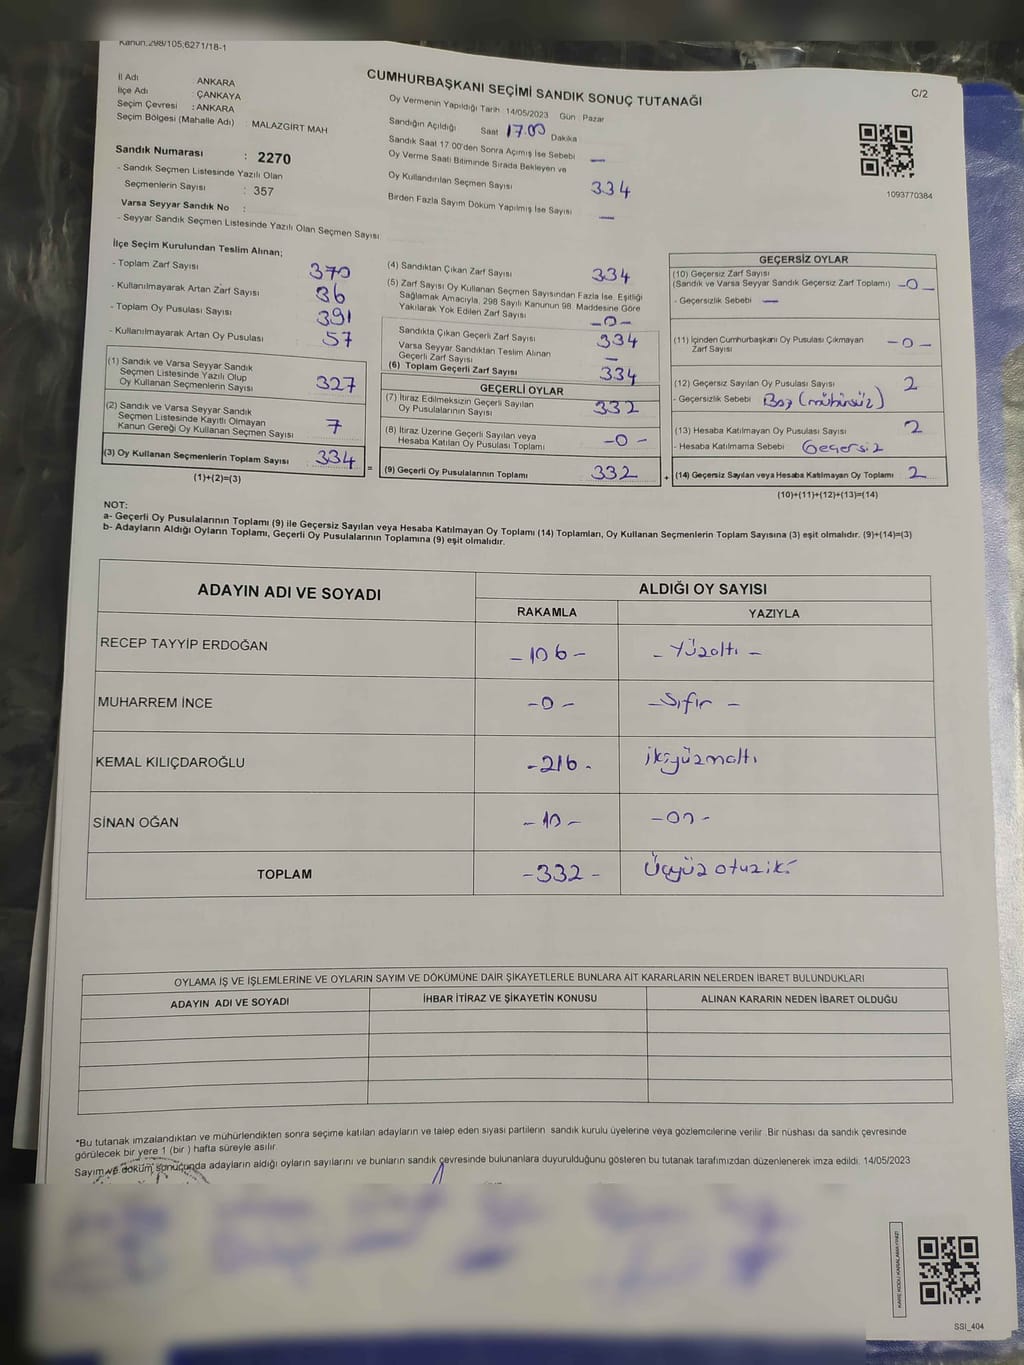 Kanun;298/105;6271/18-1
C/2
CUMHURBAŞKANI SEÇİMİ SANDIK SONUÇ TUTANAĞI
İl Adı : ANKARA
İlçe Adı : ÇANKAYA
Seçim Çevresi : ANKARA
Seçim Bölgesi (Mahalle Adı) : MALAZGİRT MAH
Sandık Numarası : 2270
- Sandık Seçmen Listesinde Yazılı Olan
Seçmenlerin Sayısı : 357
Varsa Seyyar Sandık No :
- Seyyar Sandık Seçmen Listesinde Yazılı Olan Seçmen Sayısı
Oy Vermenin Yapıldığı Tarih : 14/05/2023 Gün : Pazar
Sandığın Açıldığı Saat 17.00 Dakika
Sandık Saat 17 00'den Sonra Açımış İse Sebebi —
Oy Verme Saati Bitiminde Sırada Bekleyen ve
Oy Kullandırılan Seçmen Sayısı 334
Birden Fazla Sayım Döküm Yapılmış İse Sayısı —
1093770384
İlçe Seçim Kurulundan Teslim Alınan;
- Toplam Zarf Sayısı 370
- Kullanılmayarak Artan Zarf Sayısı 36
- Toplam Oy Pusulası Sayısı 391
- Kullanılmayarak Artan Oy Pusulası 57
(1) Sandık ve Varsa Seyyar Sandık
Seçmen Listesinde Yazılı Olup
Oy Kullanan Seçmenlerin Sayısı 327
(2) Sandık ve Varsa Seyyar Sandık
Seçmen Listesinde Kayıtlı Olmayan
Kanun Gereği Oy Kullanan Seçmen Sayısı 7
(3) Oy Kullanan Seçmenlerin Toplam Sayısı 334
(1)+(2)=(3)
=
(4) Sandıktan Çıkan Zarf Sayısı 334
(5) Zarf Sayısı Oy Kullanan Seçmen Sayısından Fazla İse, Eşitliği
Sağlamak Amacıyla, 298 Sayılı Kanunun 98. Maddesine Göre
Yakılarak Yok Edilen Zarf Sayısı -0-
Sandıkta Çıkan Geçerli Zarf Sayısı 334
Varsa Seyyar Sandıktan Teslim Alınan
Geçerli Zarf Sayısı —
(6) Toplam Geçerli Zarf Sayısı 334
GEÇERLİ OYLAR
(7) İtiraz Edilmeksizin Geçerli Sayılan
Oy Pusulalarının Sayısı 332
(8) İtiraz Üzerine Geçerli Sayılan veya
Hesaba Katılan Oy Pusulası Toplamı -0-
(9) Geçerli Oy Pusulalarının Toplamı 332
+
GEÇERSİZ OYLAR
(10) Geçersiz Zarf Sayısı
(Sandık ve Varsa Seyyar Sandık Geçersiz Zarf Toplamı) -0-
- Geçersizlik Sebebi —
(11) İçinden Cumhurbaşkanı Oy Pusulası Çıkmayan
Zarf Sayısı -0-
(12) Geçersiz Sayılan Oy Pusulası Sayısı 2
- Geçersizlik Sebebi Boş (mühürsüz)
(13) Hesaba Katılmayan Oy Pusulası Sayısı 2
- Hesaba Katılmama Sebebi Geçersiz
(14) Geçersiz Sayılan veya Hesaba Katılmayan Oy Toplamı 2
(10)+(11)+(12)+(13)=(14)
NOT:
a- Geçerli Oy Pusulalarının Toplamı (9) ile Geçersiz Sayılan veya Hesaba Katılmayan Oy Toplamı (14) Toplamları, Oy Kullanan Seçmenlerin Toplam Sayısına (3) eşit olmalıdır. (9)+(14)=(3)
b- Adayların Aldığı Oyların Toplamı, Geçerli Oy Pusulalarının Toplamına (9) eşit olmalıdır.
ADAYIN ADI VE SOYADI ALDIĞI OY SAYISI
RAKAMLA YAZIYLA
RECEP TAYYİP ERDOĞAN -106- - Yüzaltı -
MUHARREM İNCE -0- -Sıfır -
KEMAL KILIÇDAROĞLU -216- ikiyüzonaltı
SİNAN OĞAN -10- -on-
TOPLAM -332- Üçyüzotuziki
OYLAMA İŞ VE İŞLEMLERİNE VE OYLARIN SAYIM VE DÖKÜMÜNE DAİR ŞİKAYETLERLE BUNLARA AİT KARARLARIN NELERDEN İBARET BULUNDUKLARI
ADAYIN ADI VE SOYADI İHBAR İTİRAZ VE ŞİKAYETİN KONUSU ALINAN KARARIN NEDEN İBARET OLDUĞU
*Bu tutanak imzalandıktan ve mühürlendikten sonra seçime katılan adayların ve talep eden siyasi partilerin sandık kurulu üyelerine veya gözlemcilerine verilir. Bir nüshası da sandık çevresinde
görülecek bir yere 1 (bir ) hafta süreyle asılır.
Sayım ve döküm sonucunda adayların aldığı oyların sayılarını ve bunların sandık çevresinde bulunanlara duyurulduğunu gösteren bu tutanak tarafımızdan düzenlenerek imza edildi. 14/05/2023
KARE KODU KARALAMAYINIZ!
SSI_404